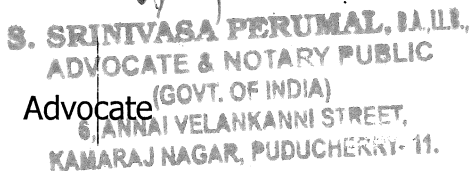 S. SRINIVASA PERUMAL, B.A.,LL.B.,
ADVOCATE & NOTARY PUBLIC
(GOVT. OF INDIA)
Advocate
6, ANNAI VELANKANNI STREET,
KAMARAJ NAGAR, PUDUCHERRY- 11.